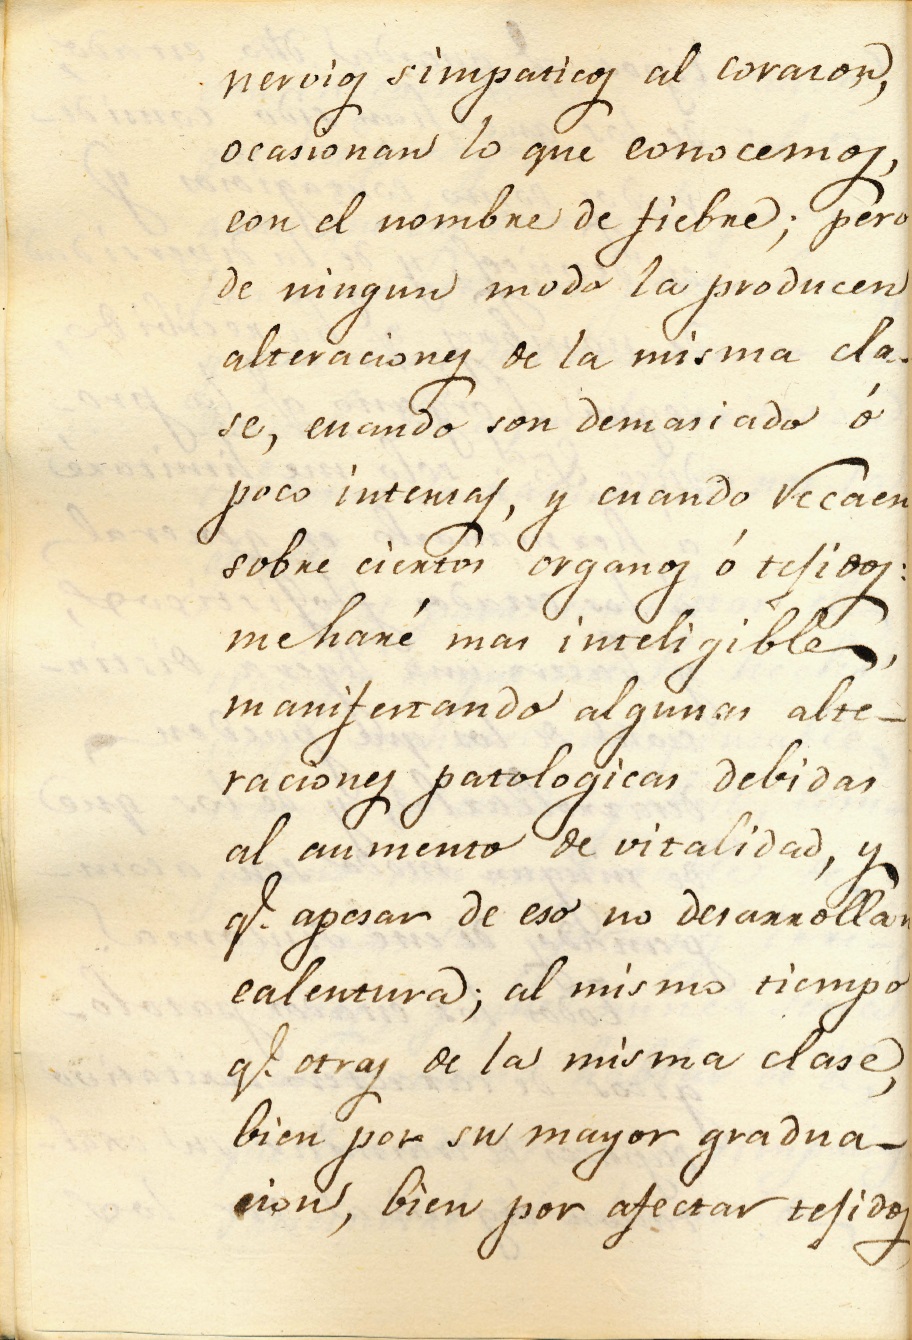 nervios simpaticos al corazon,
ocasionan lo que conocemos,
con el nombre de fiebre; pero
de ningun modo la producen
alteraciones de la misma cla-
se, cuando son demasiado ó
poco intensas, y cuando recaen
sobre ciertos organos ó tejidos:
me haré mas inteligible,
manifestando algunas alte-
raciones patologicas debidas
al aumento de vitalidad, y
q.e apesar de eso no desarrollan
calentura; al mismo tiempo
q.e otras de la misma clase,
bien por su mayor gradua-
cion, bien por afectar tejidos